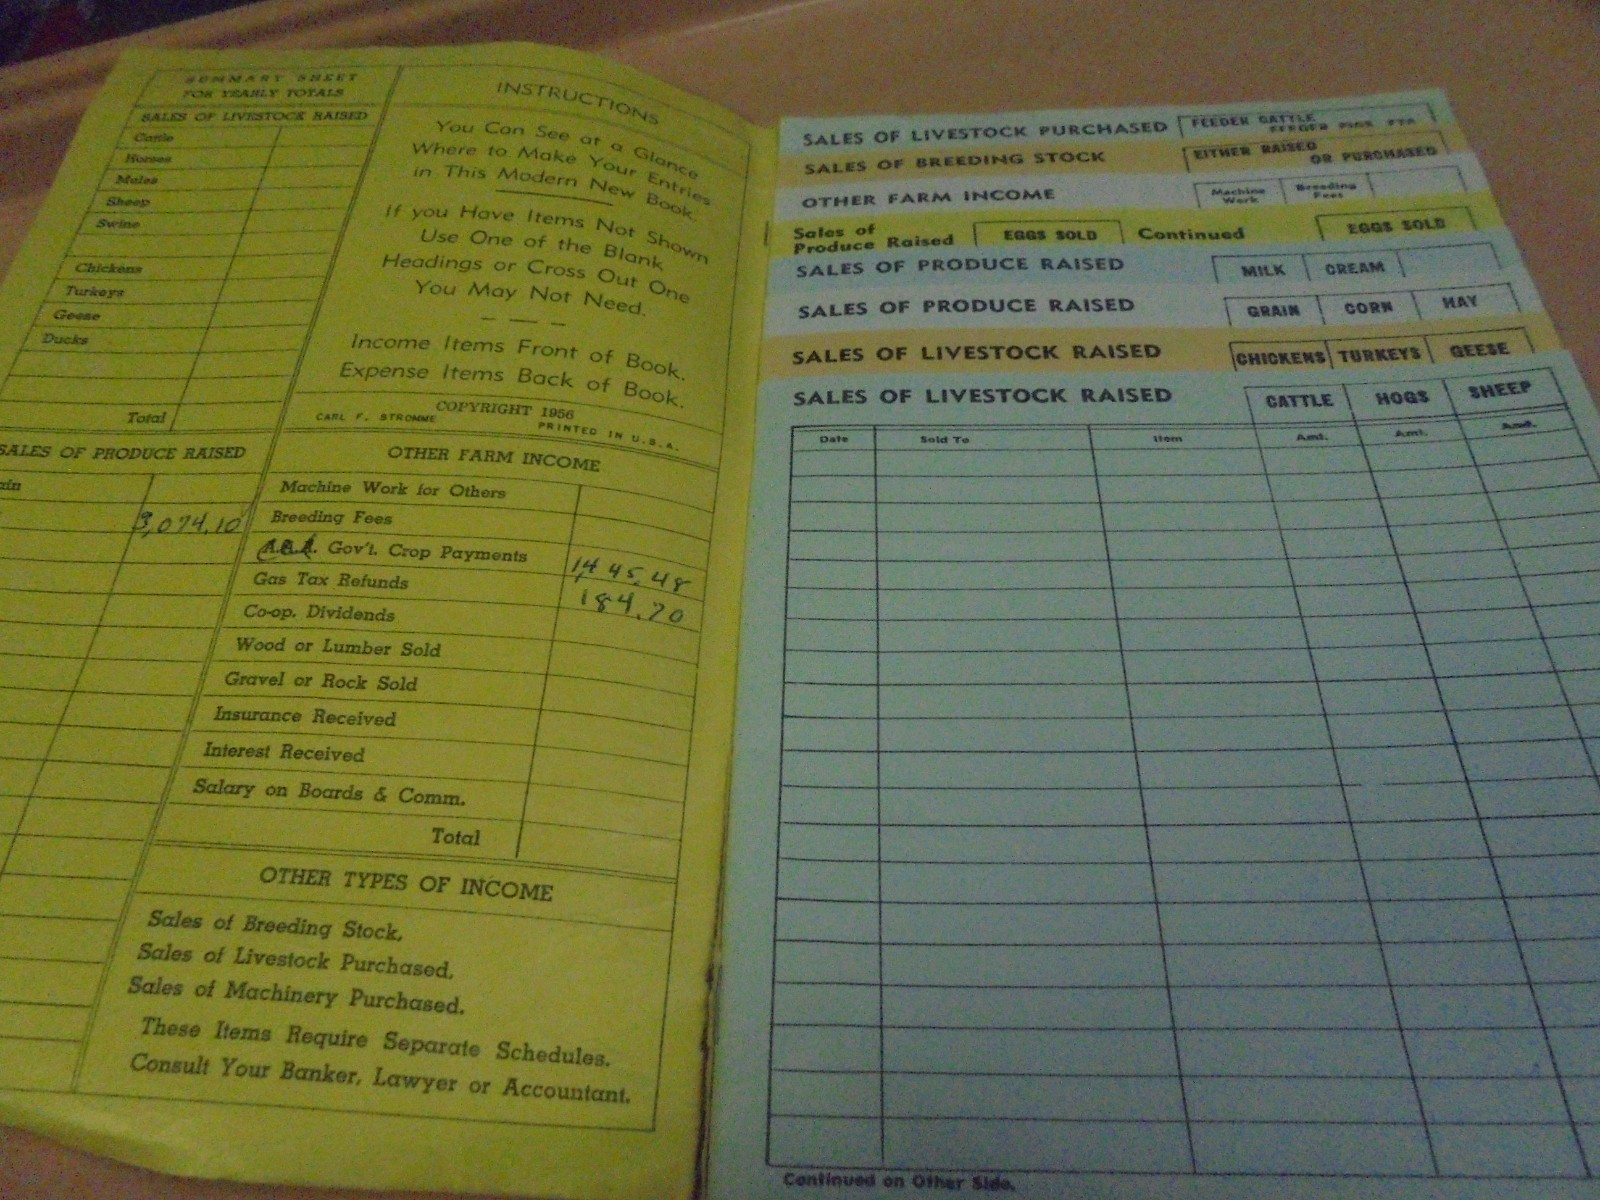 SUMMARY SHEET
FOR YEARLY TOTALS
SALES OF LIVESTOCK RAISED
Cattle
Horses
Mules
Sheep
Swine
Chickens
Turkeys
Geese
Ducks
Total
SALES OF PRODUCE RAISED
3,074.10
INSTRUCTIONS
You Can See at a Glance
Where to Make Your Entries
in This Modern New Book.
If you Have Items Not Shown
Use One of the Blank
Headings or Cross Out One
You May Not Need.
Income Items Front of Book.
Expense Items Back of Book.
COPYRIGHT 1956
CARL F. STROMME PRINTED IN U.S.A.
OTHER FARM INCOME
Machine Work for Others
Breeding Fees
Gov't. Crop Payments 1,445.48
Gas Tax Refunds 184.70
Co-op. Dividends
Wood or Lumber Sold
Gravel or Rock Sold
Insurance Received
Interest Received
Salary on Boards & Comm.
Total
OTHER TYPES OF INCOME
Sales of Breeding Stock,
Sales of Livestock Purchased,
Sales of Machinery Purchased.
These Items Require Separate Schedules.
Consult Your Banker, Lawyer or Accountant.
SALES OF LIVESTOCK PURCHASED FEEDER CATTLE
FEEDER PIGS ETC
SALES OF BREEDING STOCK EITHER RAISED
OR PURCHASED
OTHER FARM INCOME Machine Work Breeding Fees
Sales of
Produce Raised EGGS SOLD Continued EGGS SOLD
SALES OF PRODUCE RAISED MILK CREAM
SALES OF PRODUCE RAISED GRAIN CORN HAY
SALES OF LIVESTOCK RAISED CHICKENS TURKEYS GEESE
SALES OF LIVESTOCK RAISED CATTLE HOGS SHEEP
Date Sold To Item Amt. Amt. Amt.
Continued on Other Side.